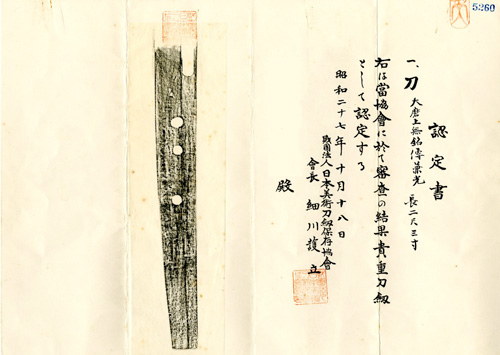 5260
認定書
一、刀 大磨上無銘傳景光 長二尺三寸
右は當協會に於て審査の結果貴重刀剣
として認定する
昭和二十七年十月十八日
財団法人日本美術刀剣保存協會
會長 細川護立
殿